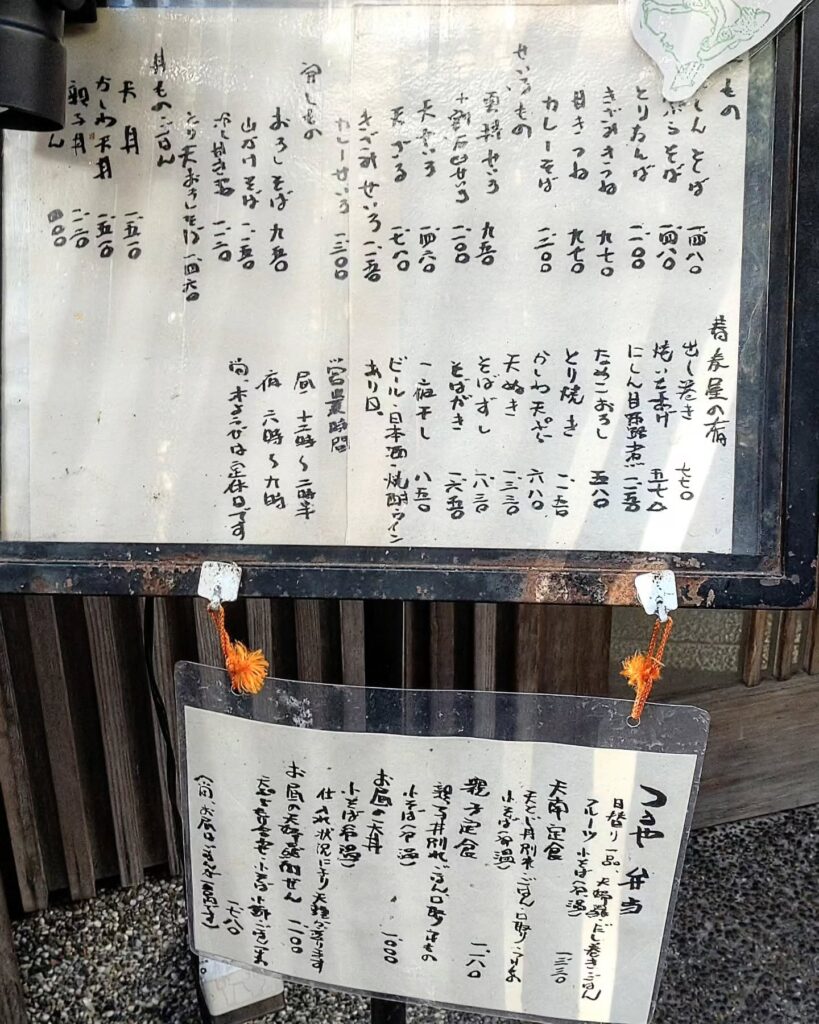 もの
しんそば 一、四八〇
ぷらそば 一、四八〇
とりなんば 一、二〇〇
きざみきつね 九七〇
甘きつね 九七〇
カレーそば 一、二〇〇
せいろもの
せいろ 九五〇
十割 せいろ 一、一〇〇
天せいろ 一、四六〇
天ざる 一、七八〇
きざみせいろ 一、一五〇
カレーせいろ 一、三〇〇
冷しもの
おろしそば 九五〇
山かけそば 一、一五〇
冷し甘きつね 一、一二〇
とり天おろしそば 一、四六〇
丼もの ごはん
天丼 一、五一〇
かしわ天丼 一、五一〇
親子丼 一、一二〇
ん 四〇〇
蕎麦屋の肴
出し巻き 七七〇
焼いたあげ 五七〇
にしん甘露煮 一、一五〇
なめこおろし 五八〇
とり焼き 一、一五〇
かしわ天ぷら 六八〇
天ぬき 一、三三〇
そばずし 一、八三〇
そばがき 一、六五〇
一夜干し 八五〇
ビール・日本酒・焼酎・ワイン
あり〼。
営業時間
昼 十二時〜二時半
夜 六時〜九時
尚、木よう は定休日です
つるや 弁当
日替り一品、天婦羅、だし巻き、ごはん
フルーツ 小そば(冷温) 一、三三〇
天丼定食
天とじ丼別れ ごはん 口取り つけもの
小そば(冷温)
親子定食 一、一八〇
親子丼別れ ごはん 口取り つけもの
小そば(冷・温)
お昼の天丼 一、〇〇〇
小そば(冷温)
仕入れ状況により天種が変ります
お昼の天婦羅御ぜん 二、一〇〇
天婦羅盛合せ・小そば・小鉢・ごはん
(尚、お昼 です)
一、七八〇